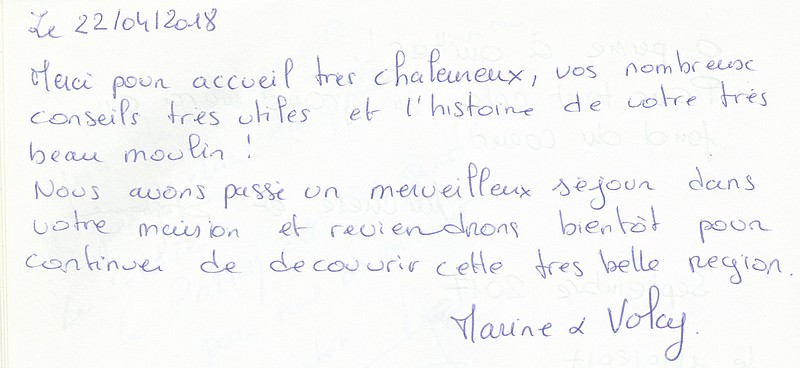 Le 22/04/2018
Merci pour accueil très chaleureux, vos nombreux
conseils très utiles et l'histoire de votre très
beau moulin !
Nous avons passé un merveilleux séjour dans
votre maison et reviendrons bientôt pour
continuer de decouvrir cette tres belle region.
Marine &